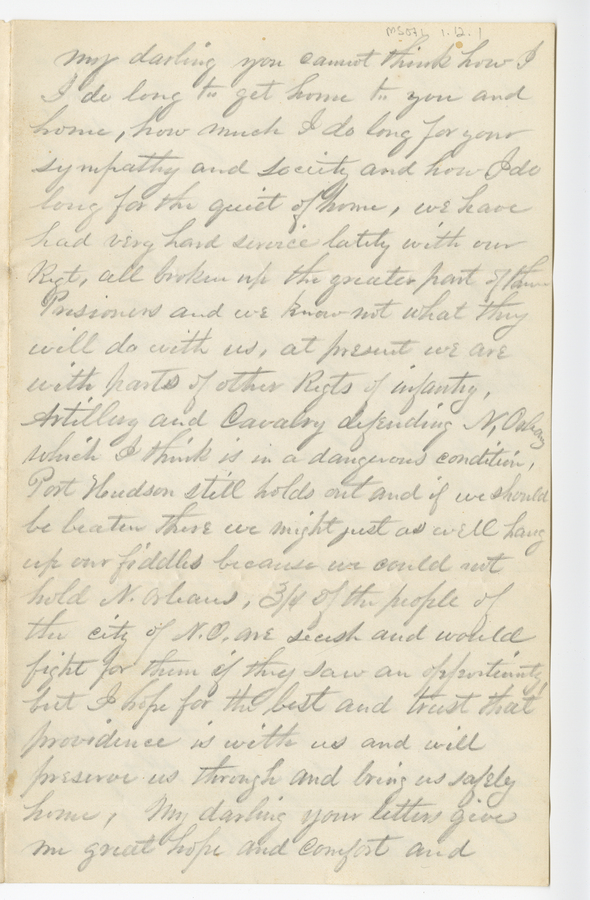 MS071 1.12.1
my darling you cannot think how I
I do long to get home to you and
home, how much I do long for your
sympathy and society and how I do
long for the quiet of home, we have
had very hard service lately with our
Regt, all broken up the greater part of them
Prisioners and we know not what they
will do with us, at present we are
with parts of other Regts of infantry,
Artillery and Cavalry defending N, Orleans
which I think is in a dangerous condition,
Port Hudson still holds out and if we should
be beaten there we might just as well hang
up our fiddles because we could not
hold N. Orleans, 3/4 of the people of
the city of N.O. are secesh and would
fight for them if they saw an opportunity
but I hope for the best and trust that
providence is with us and will
preserve us through and bring us safely
home, My darling your letters give
me great hope and comfort and